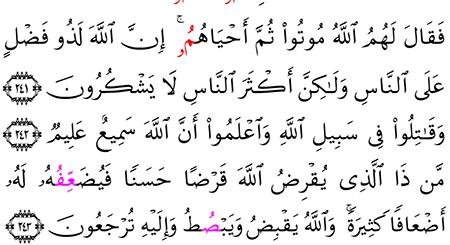 فَقَالَ لَهُمُ ٱللَّهُ مُوتُوا۟ ثُمَّ أَحْيَاهُمُۥٓ ۚ إِنَّ ٱللَّهَ لَذُو فَضْلٍ
عَلَى ٱلنَّاسِ وَلَٰكِنَّ أَكْثَرَ ٱلنَّاسِ لَا يَشْكُرُونَ ﴿٢٤١﴾
وَقَٰتِلُوا۟ فِى سَبِيلِ ٱللَّهِ وَٱعْلَمُوٓا۟ أَنَّ ٱللَّهَ سَمِيعٌ عَلِيمٌ ﴿٢٤٢﴾
مَّن ذَا ٱلَّذِى يُقْرِضُ ٱللَّهَ قَرْضًا حَسَنًا فَيُضَعِّفُهُۥ لَهُۥٓ
أَضْعَافًا كَثِيرَةً ۚ وَٱللَّهُ يَقْبِضُ وَيَبْصُطُ وَإِلَيْهِ تُرْجَعُونَ ﴿٢٤٣﴾